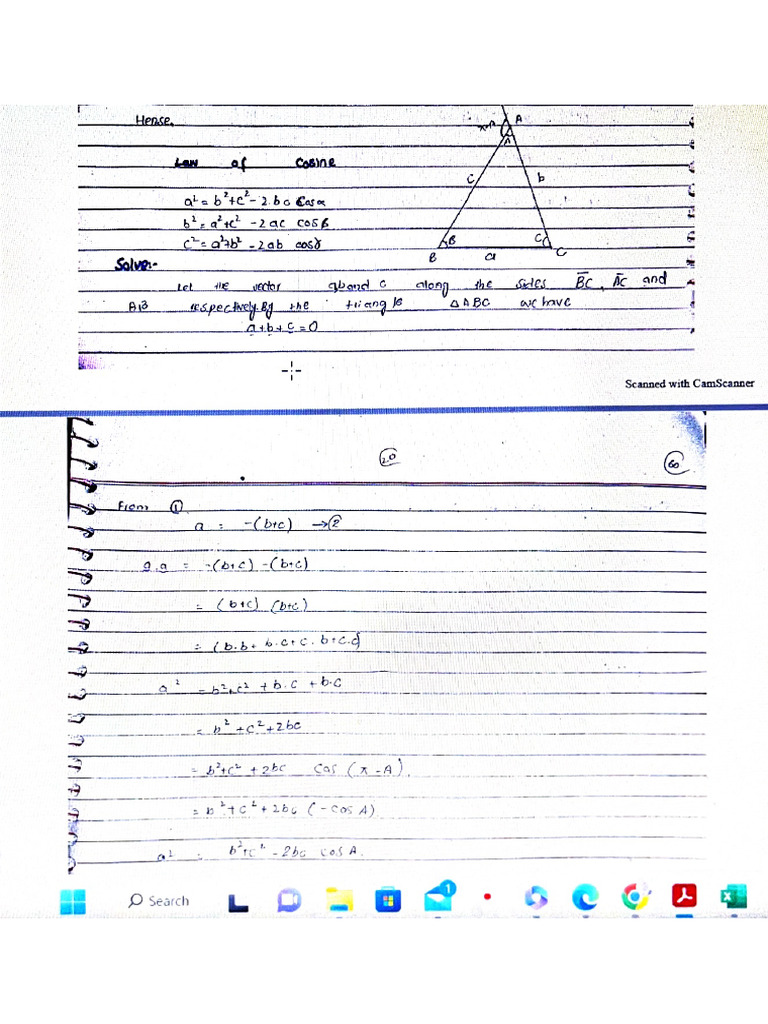 Hense,
A
π-A
A
Law of Cosine
c
b
a² = b²+c²- 2.bc Cosα
b² = a²+c² - 2ac cosβ
c² = a²+b² - 2ab cosγ
B
C
B
a
C
Solve:-
Let the vector a,b and c along the sides BC, AC and
AB respectively. By the triangle ΔABC we have
a+b+c=0
Scanned with CamScanner
20
60
From ①
a = -(b+c) →②
a.a = -(b+c) -(b+c)
= (b+c) (b+c)
= (b.b+ b.c+c.b+c.c)
a² = b²+c² + b.c + b.c
= b² + c² + 2bc
= b²+c² + 2bc cos (π-A).
= b²+c² + 2bc (-cos A)
a² = b²+c² - 2bc cos A.
Search
1